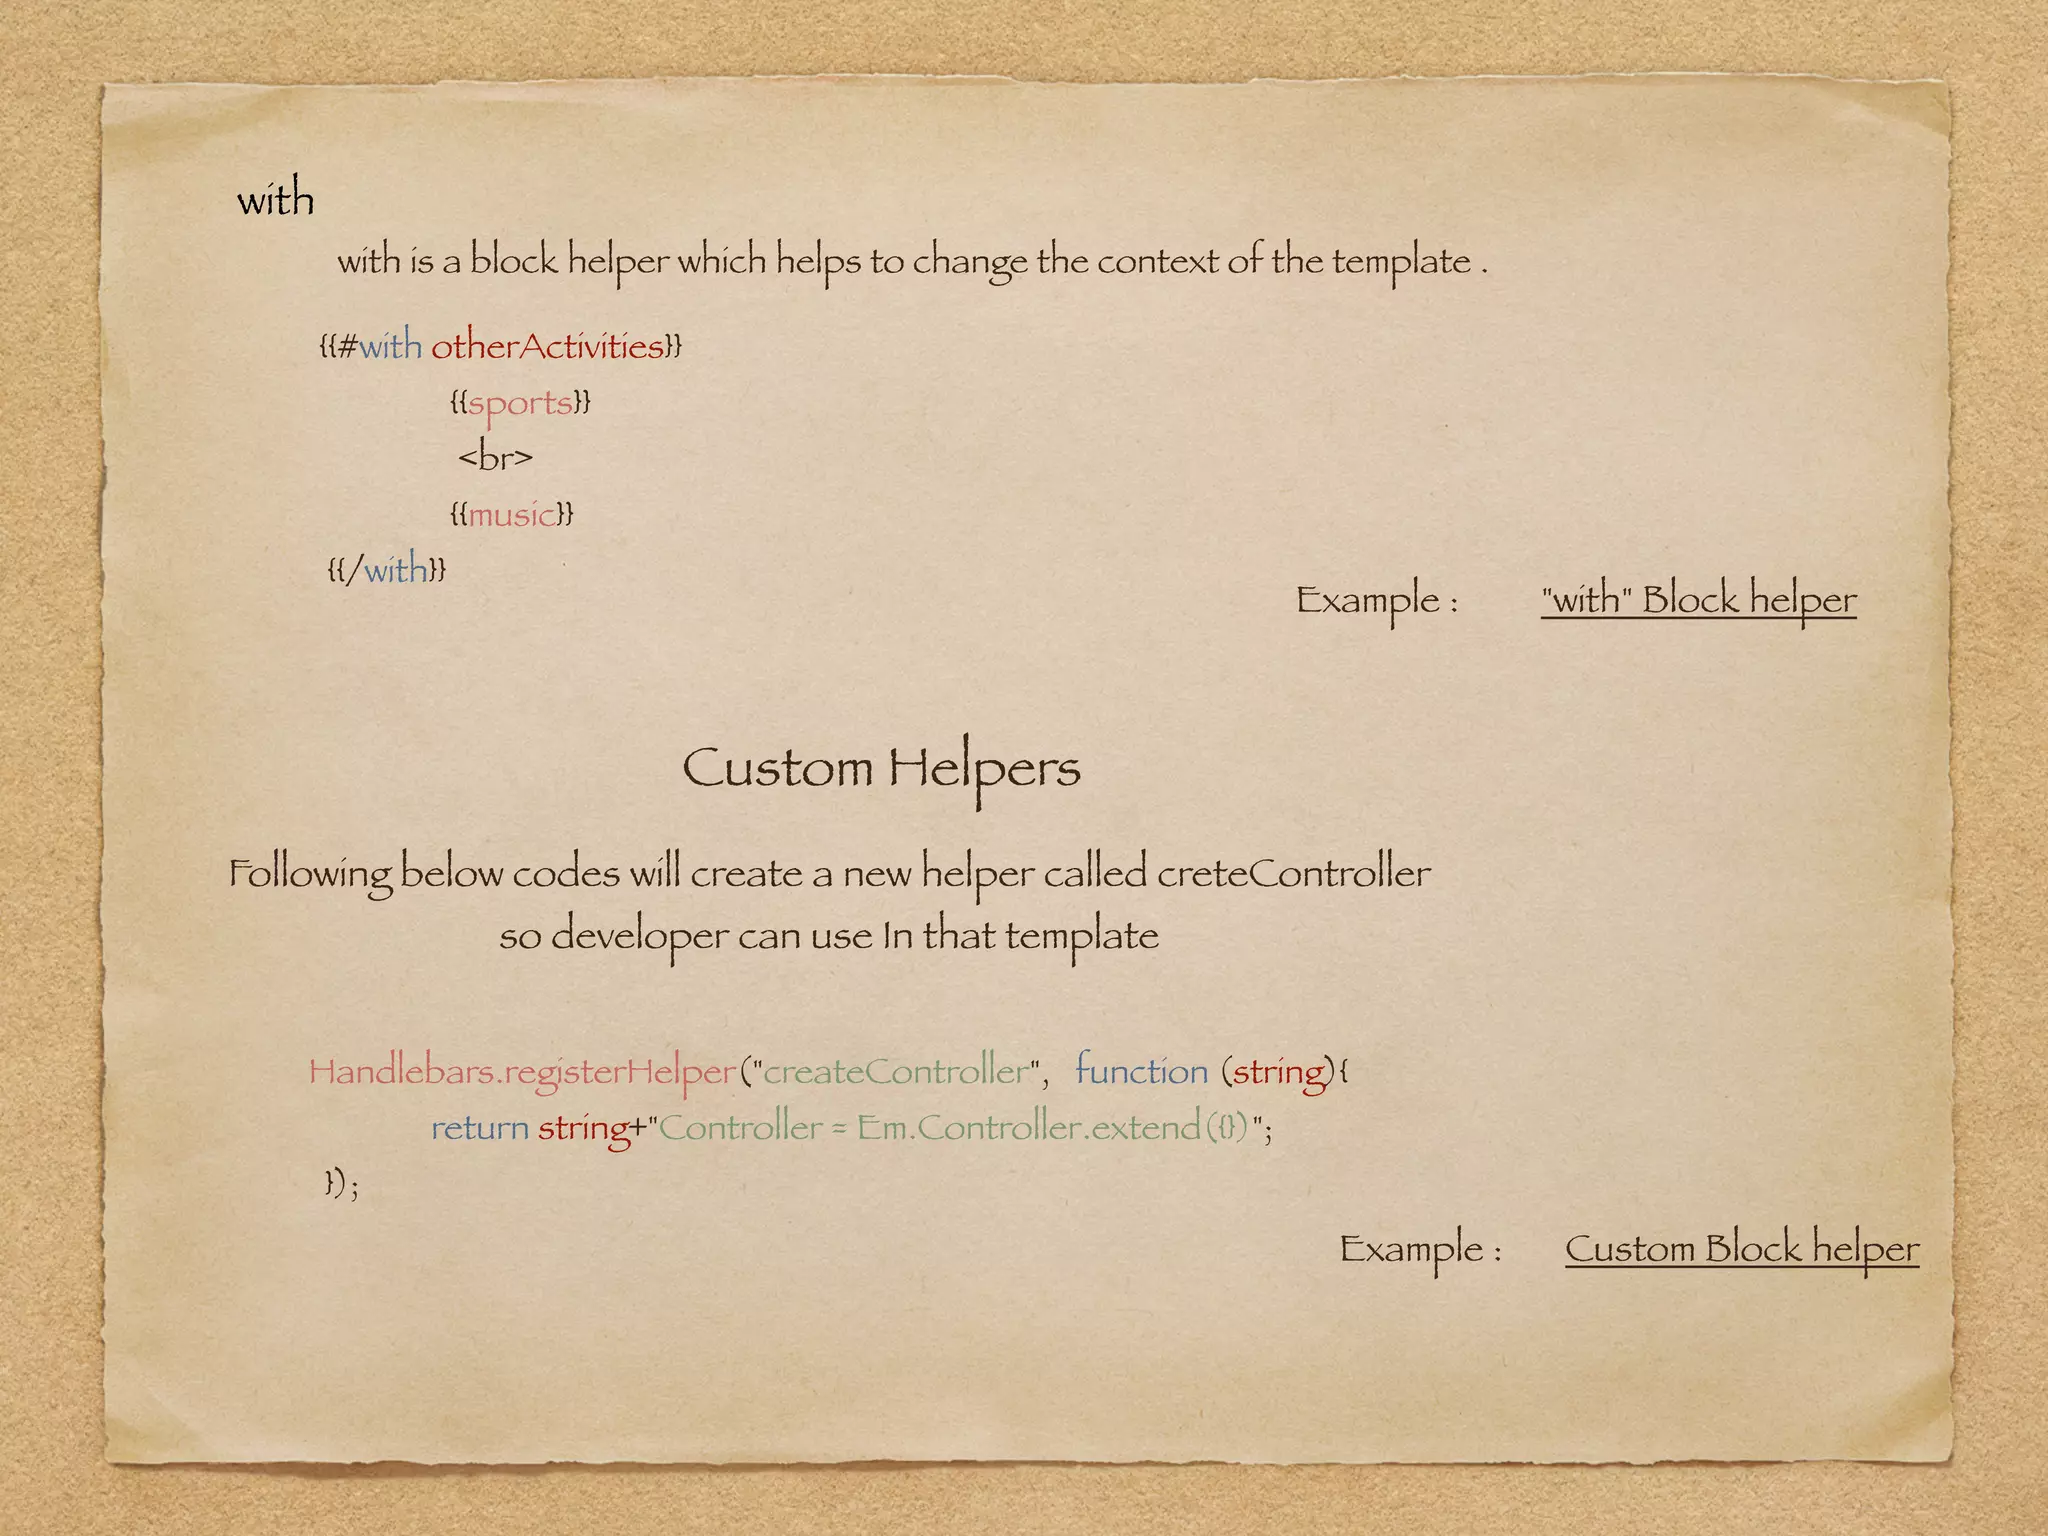 with
with is a block helper which helps to change the context of the template .
{{#with otherActivities}}
{{sports}}
<br>
{{music}}
{{/with}}
Example : "with" Block helper
Custom Helpers
Following below codes will create a new helper called creteController
so developer can use In that template
Handlebars.registerHelper("createController", function (string){
return string+"Controller = Em.Controller.extend({})";
});
Example : Custom Block helper